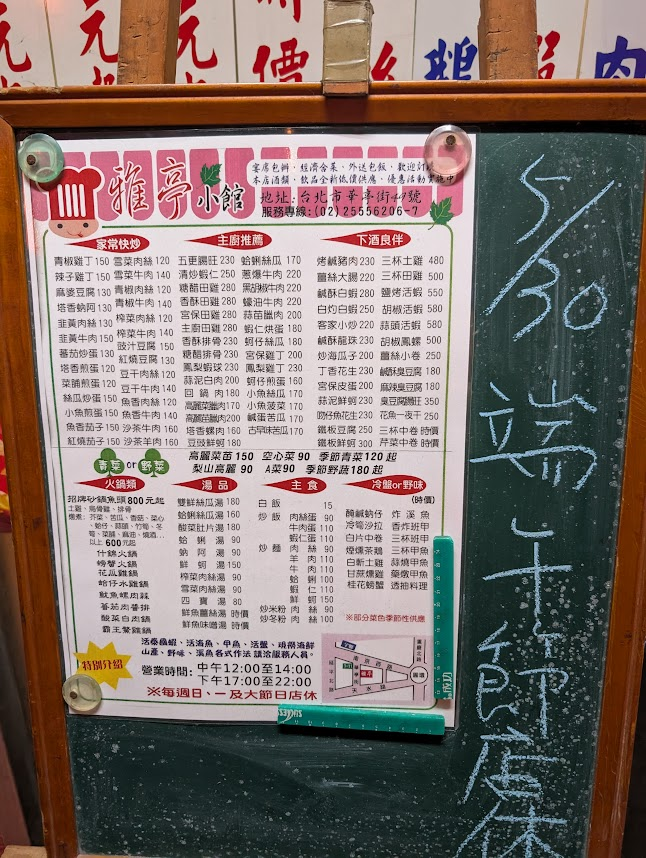 元
元
元
時價
鵝
肉
雅亭小館
宴席包辦、經濟合菜、外送包飯、歡迎訂
本店酒類、飲品全新低價供應、優惠活動實施中
地址:台北市華亭街49號
服務專線:(02)25556206-7
家常快炒
青椒雞丁150
辣子雞丁150
麻婆豆腐130
塔香蚋阿130
韭黃肉絲110
韭黃肉絲110
蕃茄炒蛋130
塔香煎蛋120
菜脯煎蛋120
絲瓜炒蛋150
小魚煎蛋150
魚香茄子150
紅燒茄子150
雪菜肉絲120
雪菜牛肉140
青椒肉絲120
青椒牛肉140
榨菜肉絲120
榨菜牛肉140
豉汁豆腐150
紅燒豆腐130
豆干肉絲120
豆干牛肉140
魚香肉絲120
魚香牛肉140
沙茶牛肉160
沙茶羊肉160
主廚推薦
五更腸旺230
清炒蝦仁250
糖醋田雞230
香酥田雞230
宮保田雞230
主廚田雞230
香酥排骨230
糖醋排骨230
鳳梨蝦球230
蒜泥白肉200
回鍋肉180
高麗菜臘肉170
高麗菜臘肉200
塔香螺肉160
豆豉鮮蚵180
蛤蜊絲瓜170
蔥爆牛肉220
黑胡椒牛肉220
蠔油牛肉220
蒜苗臘肉200
蝦仁烘蛋180
蚵仔絲瓜180
宮保雞丁200
鳳梨雞丁200
蚵仔煎蛋160
小魚絲瓜170
小魚菠菜170
鹹蛋苦瓜170
古早味苦瓜170
下酒良伴
烤鹹豬肉230
薑絲大腸220
鹹酥白蝦280
白灼白蝦250
客家小炒220
鹹酥龍珠230
炒海瓜子200
丁香花生230
宮保皮蛋200
蒜泥鮮蚵200
吻仔魚花生230
鐵板豆腐250
鐵板鮮蚵300
三杯土雞480
三杯田雞500
鹽烤活蝦550
胡椒活蝦580
蒜頭活蝦580
胡椒鳳螺500
薑絲小卷250
鹹酥臭豆腐180
麻辣臭豆腐180
臭豆腐腸旺350
花魚一夜干250
三杯中卷時價
芹菜中卷時價
青菜or野菜
高麗菜苗150 空心菜90 季節青菜120起
梨山高麗90 A菜90 季節野蔬180起
火鍋類
招牌砂鍋魚頭800元起
土雞、烏骨雞、排骨
燉煮:芥菜、苦瓜、香菇、菜心
、蛤仔、蒜頭、竹筍、冬
筍、菜脯、麻油、燒酒...
以上600元起
什錦火鍋
螃蟹火鍋
花瓜雞鍋
蛤仔水雞鍋
魷魚螺肉蒜
蕃茄肉醬排
酸菜白肉鍋
霸王鱉雞鍋
湯品
雙鮮絲瓜湯180
蛤蜊絲瓜湯160
酸菜肚片湯180
蛤蜊湯90
蚋阿湯90
鮮蚵湯150
榨菜肉絲湯90
雪菜肉絲湯90
四寶湯80
鮮魚薑絲湯時價
鮮魚味噌湯時價
主食
白飯15
炒飯 肉絲蛋90
牛肉蛋110
蝦仁蛋110
炒麵 肉絲90
羊肉110
牛肉110
蛤蜊100
蝦仁110
鮮蚵150
炒米粉肉絲100
炒冬粉肉絲100
冷盤or野味
(時價)
醃鹹蚋仔
冷筍沙拉
白片中卷
煙燻茶鵝
白斬土雞
甘蔗燻雞
桂花螃蟹
炸溪魚
香炸班甲
三杯班甲
三杯甲魚
蒜燒甲魚
藥燉甲魚
透抽料理
※部分菜色季節性供應
特別介紹
活泰國蝦、活海魚、甲魚、活蟹、現撈海鮮
山產、野味、溪魚各式作法 請洽服務人員。
營業時間:中午12:00至14:00
下午17:00至22:00
※每週日、一及大節日店休
南京西路
天水路
重慶北路
圓環
成功
5/30
端午節店休